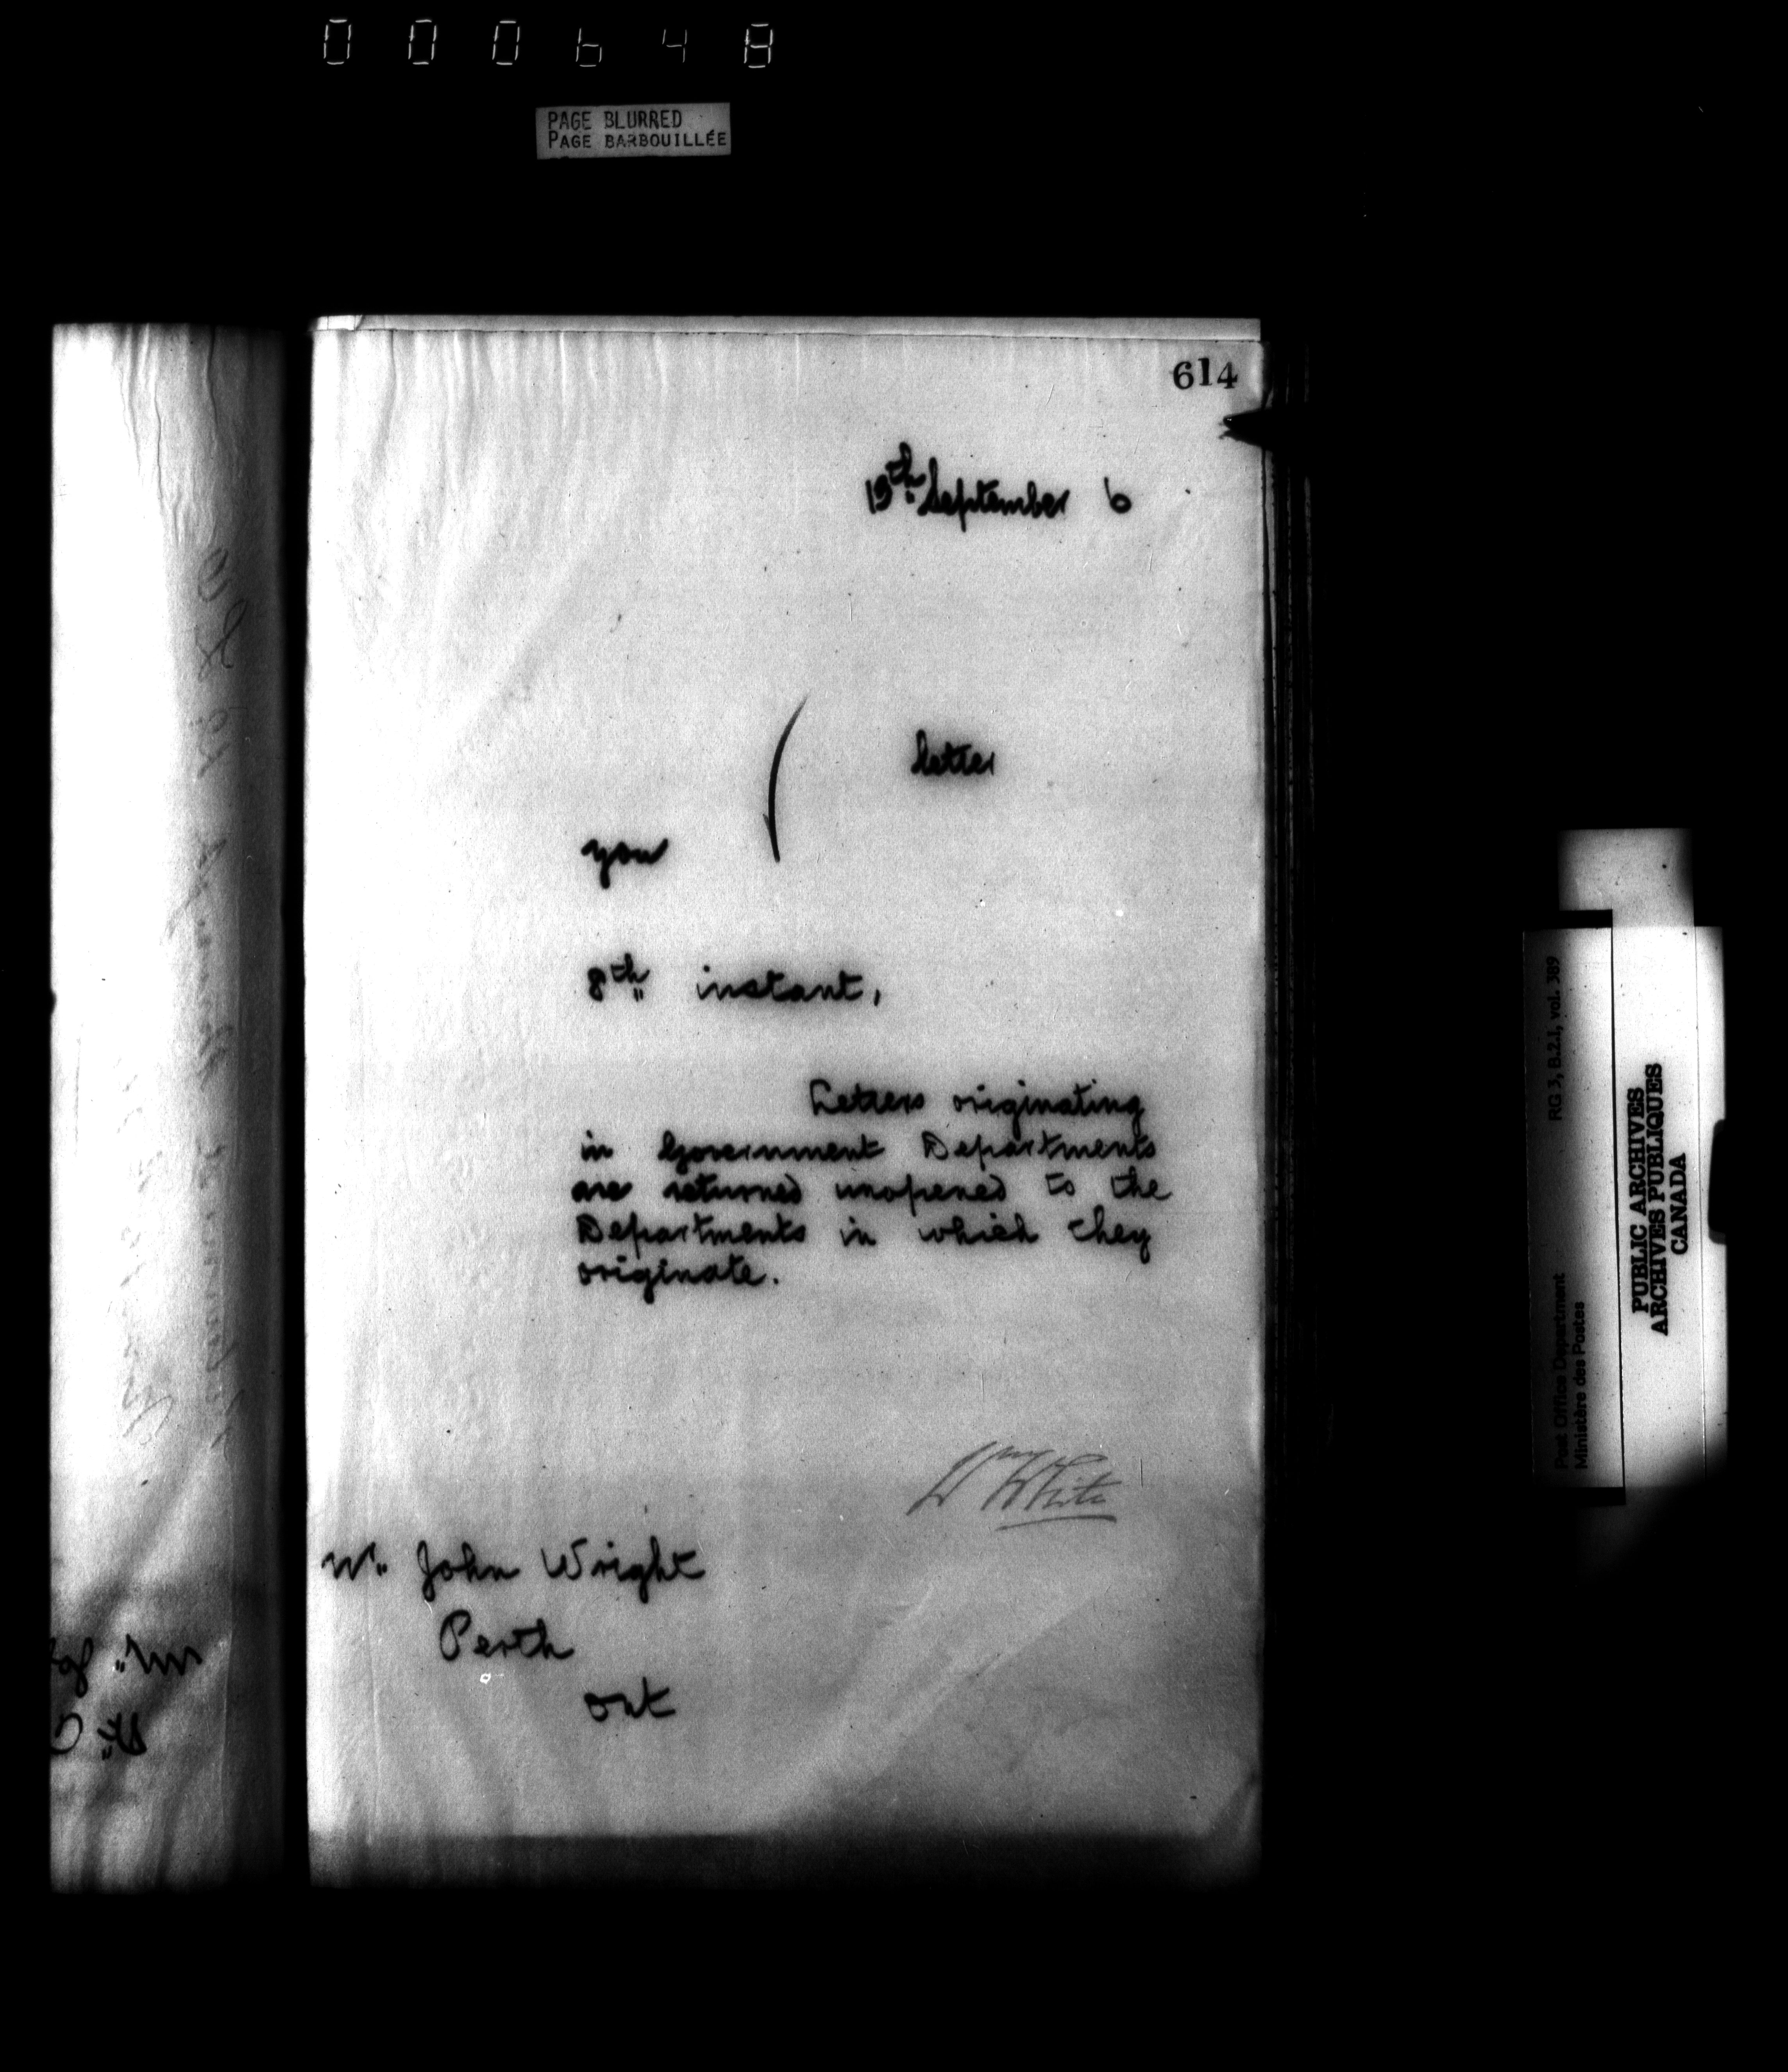 000648
PAGE BLURRED
PAGE BARBOUILLÉE
614
19th September 6
letter
you
8th instant,
Letters originating
in Government Departments
are returned unopened to the
Departments in which they
originate.
Wm White
Mr. John Wright
Perth
Ont
RG 3, B.2.1, vol. 389
Post Office Department
Ministère des Postes
PUBLIC ARCHIVES
ARCHIVES PUBLIQUES
CANADA